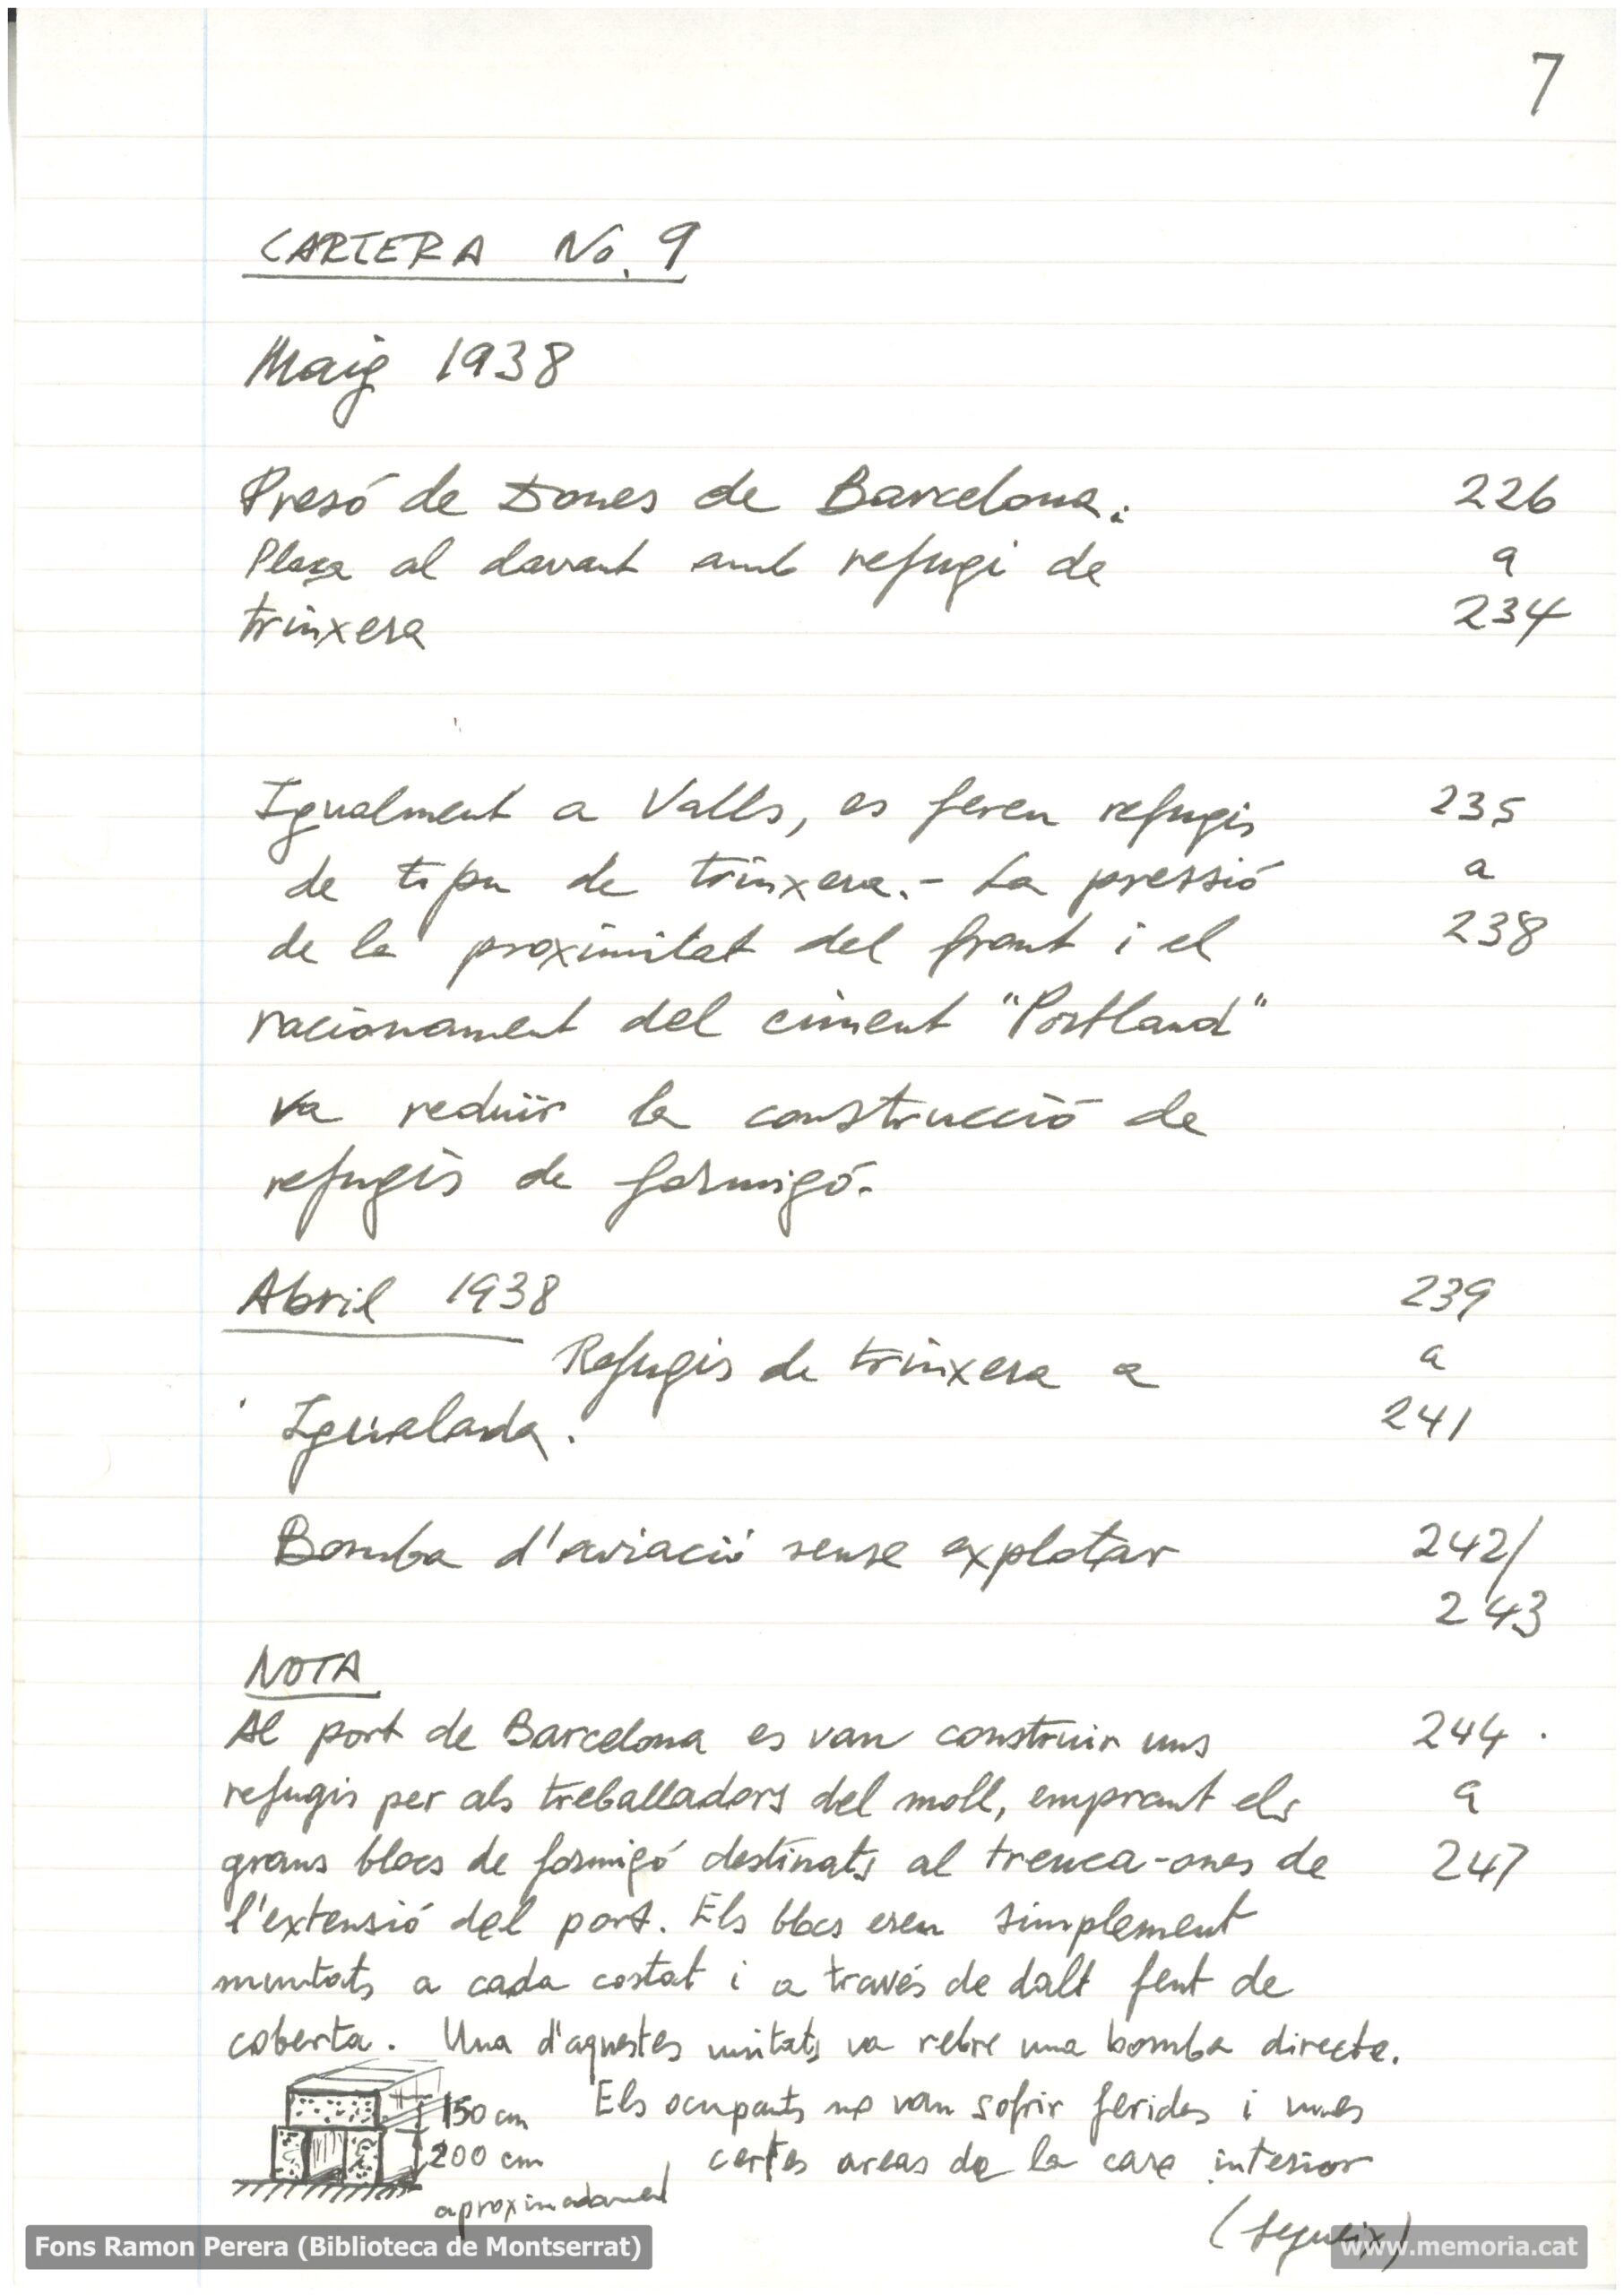 7
CARTERA No. 9
Maig 1938
Presó de Dones de Barcelona. 226
Plaza al davant amb refugi de a
trinxera 234
Igualment a Valls, es feren refugis 235
de tipu de trinxera.- La pressió a
de la proximitat del front i el 238
racionament del ciment "Portland"
va reduïr la construcció de
refugis de formigó.
Abril 1938 239
Refugis de trinxera a a
Igualada. 241
Bomba d'aviació sense explotar 242/
243
NOTA
Al port de Barcelona es van construir uns 244.
refugis per als treballadors del moll, emprant els a
grans blocs de formigó destinats al trenca-ones de 247
l'extensió del port. Els blocs eren simplement
muntats a cada costat i a través de dalt fent de
coberta. Una d'aquestes unitats va rebre una bomba directe.
150 cm Els ocupants no van sofrir ferides i unes
200 cm certes areas de la cara interior
aproximadament
(segueix)
Fons Ramon Perera (Biblioteca de Montserrat)
www.memoria.cat